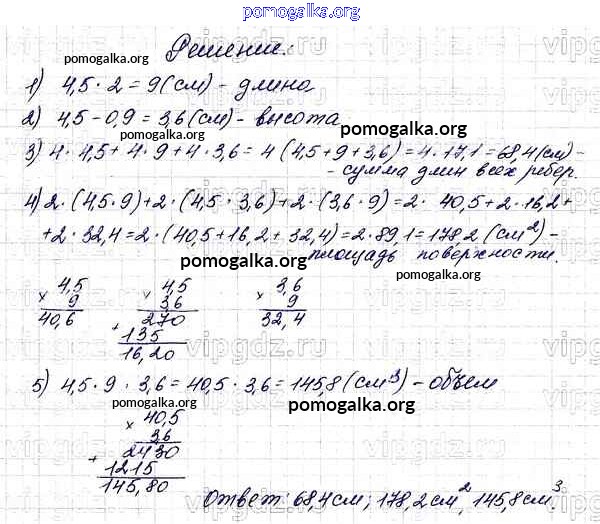 pomogalka.org
Решение:
pomogalka.org
1) 4,5 · 2 = 9 (см) - длина
2) 4,5 - 0,9 = 3,6 (см) - высота
pomogalka.org
pomogalka.org
3) 4 · 4,5 + 4 · 9 + 4 · 3,6 = 4 (4,5 + 9 + 3,6) = 4 · 17,1 = 68,4 (см) -
- сумма длин всех ребер.
pomogalka.org
4) 2 · (4,5 · 9) + 2 · (4,5 · 3,6) + 2 · (3,6 · 9) = 2 · 40,5 + 2 · 16,2 +
+ 2 · 32,4 = 2 · (40,5 + 16,2 + 32,4) = 2 · 89,1 = 178,2 (см²) -
площадь поверхности.
pomogalka.org
pomogalka.org
4,5 4,5 3,6
× 9 × 3,6 × 9
40,6 270 32,4
+ 135
16,20
pomogalka.org
pomogalka.org
5) 4,5 · 9 · 3,6 = 40,5 · 3,6 = 145,8 (см³) - объем
pomogalka.org
pomogalka.org
40,5
× 3,6
2430
+ 1215
145,80
Ответ: 68,4 см; 178,2 см², 145,8 см³.
vipgdz.ru